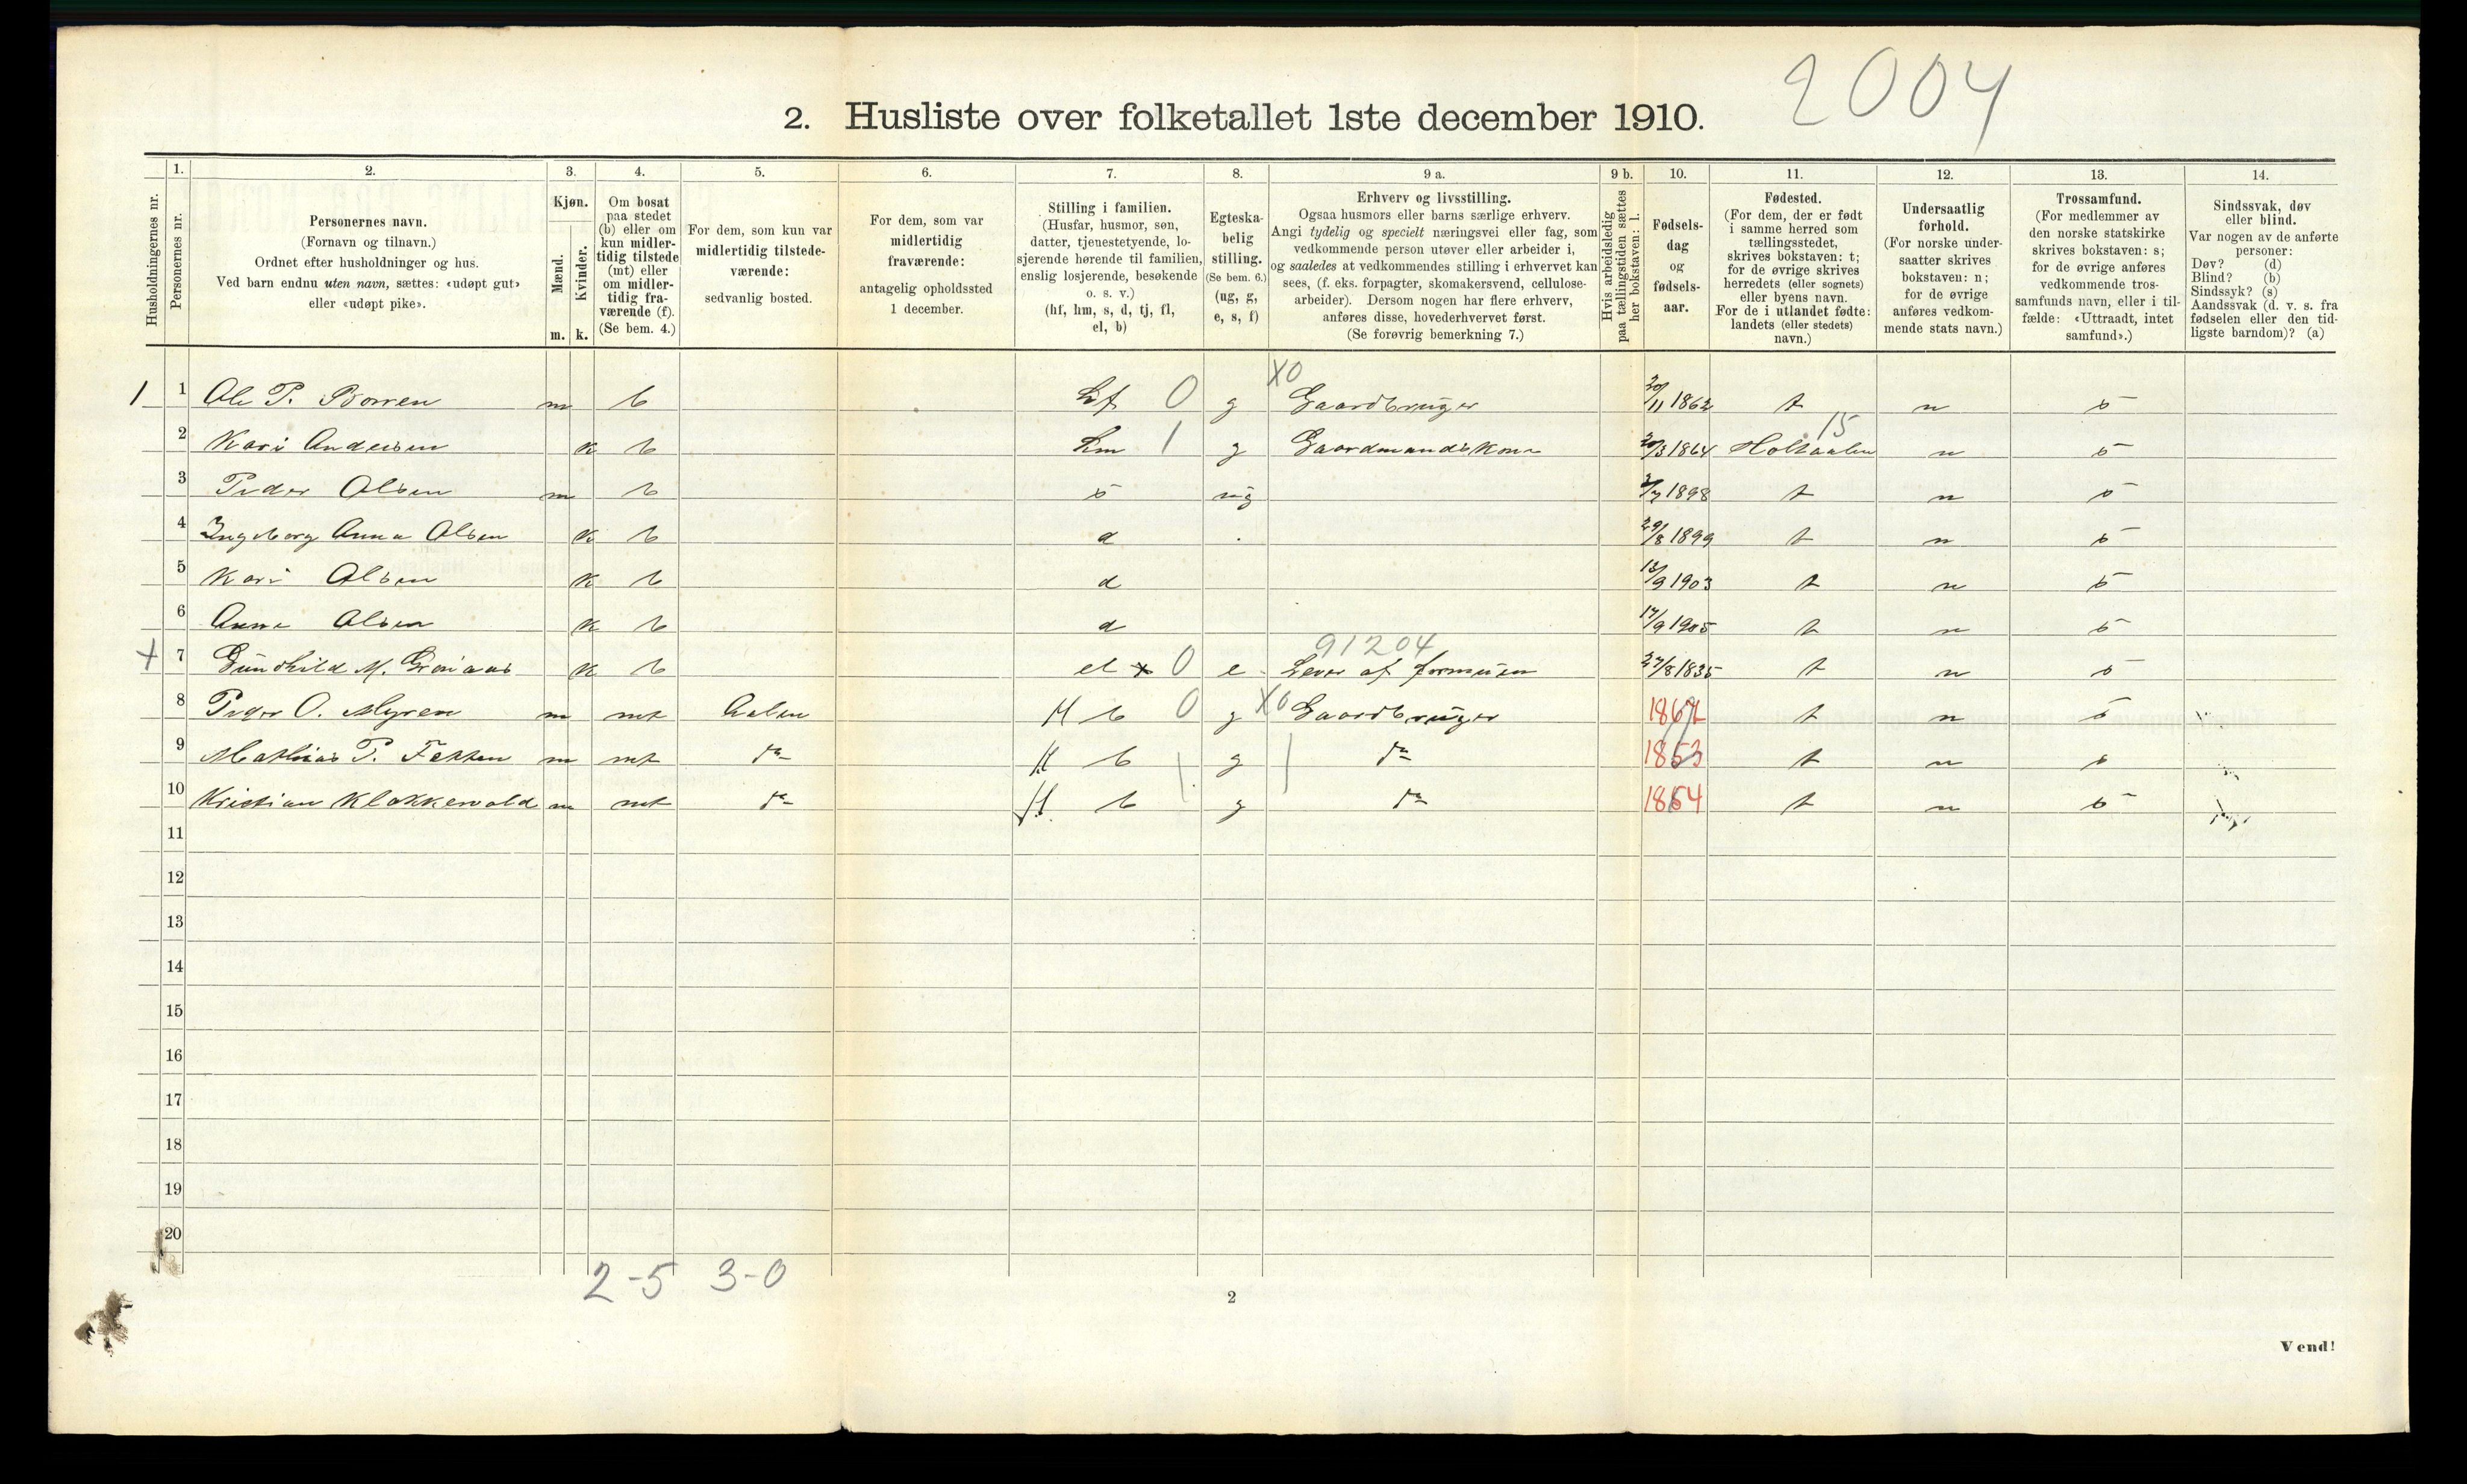 2004
2. Husliste over folketallet 1ste december 1910.
Husholdningernes nr.
1. Personernes nr.
2. Personernes navn. (Fornavn og tilnavn.) Ordnet efter husholdninger og hus. Ved barn endnu uten navn, sættes: «udøpt gut» eller «udøpt pike».
3. Kjøn. Mænd. m. Kvinder. k.
4. Om bosat paa stedet (b) eller om kun midlertidig tilstede (mt) eller om midlertidig fraværende (f). (Se bem. 4.)
5. For dem, som kun var midlertidig tilstedeværende: sedvanlig bosted.
6. For dem, som var midlertidig fraværende: antagelig opholdssted 1 december.
7. Stilling i familien. (Husfar, husmor, søn, datter, tjenestetyende, losjerende hørende til familien, enslig losjerende, besøkende o. s. v.) (hf, hm, s, d, tj, fl, el, b)
8. Egteskabelig stilling. (Se bem. 6.) (ug, g, e, s, f)
9 a. Erhverv og livsstilling. Ogsaa husmors eller barns særlige erhverv. Angi tydelig og specielt næringsvei eller fag, som vedkommende person utøver eller arbeider i, og saaledes at vedkommendes stilling i erhvervet kan sees, (f. eks. forpagter, skomakersvend, cellulosearbeider). Dersom nogen har flere erhverv, anføres disse, hovederhvervet først. (Se forøvrig bemerkning 7.)
9 b. Hvis arbeidsledig paa tællingstiden sættes her bokstaven: l.
10. Fødselsdag og fødselsaar.
11. Fødested. (For dem, der er født i samme herred som tællingsstedet, skrives bokstaven: t; for de øvrige skrives herredets (eller sognets) eller byens navn. For de i utlandet fødte: landets (eller stedets) navn.)
12. Undersaatlig forhold. (For norske undersaatter skrives bokstaven: n; for de øvrige anføres vedkommende stats navn.)
13. Trossamfund. (For medlemmer av den norske statskirke skrives bokstaven: s; for de øvrige anføres vedkommende trossamfunds navn, eller i tilfælde: «Uttraadt, intet samfund».)
14. Sindssvak, døv eller blind. Var nogen av de anførte personer: Døv? (d) Blind? (b) Sindssyk? (s) Aandssvak (d. v. s. fra fødselen eller den tidligste barndom)? (a)
1 1 Ole P. Borren m b hf 0 g X0 Gaardbruger 20/11 1862 t n s
2 Kari Andersen k b hm 1 g Gaardmandskone 20/3 1864 Holtaalen 15 n s
3 Peder Olsen m b s ug 2/7 1898 t n s
4 Ingeborg Anna Olsen k b d 29/8 1899 t n s
5 Kari Olsen k b d 13/9 1903 t n s
6 Anne Olsen k b d 17/9 1905 t n s
x 7 Gundhild M. k b el x 0 e 91204 Lever af formuen 27/8 1835 t n s
8 Peder O. Myren m mt Aalen H b 0 g X0 Gaardbruger 1867 t n s
9 Mathias P. m mt do H b 1 g 1 do 1853 t n s
10 Kristian Klokkervold m mt do H b g do 1864 t n s
11
12
13
14
15
16
17
18
19
20
2-5 3-0
2
Vend!